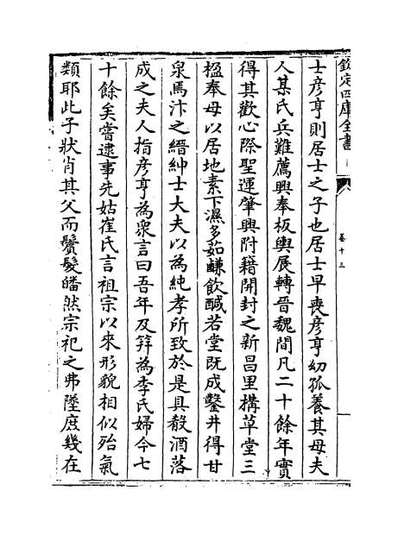 欽定四庫全書
卷十三
士彦亨則居士之子也居士早喪彦亨幼孤養其母夫
人某氏兵難薦興奉板輿展轉晉魏間凡二十餘年實
得其歡心際聖運肇興附籍開封之新昌里構草堂三
楹奉母以居地素下濕多茹鹻飲鹹若堂既成鑿井得甘
泉焉汴之縉紳士大夫以為純孝所致於是具殽酒落
成之夫人指彦亨為衆言曰吾年及笄為李氏婦今七
十餘矣嘗逮事先姑崔氏言祖宗以來形貌相似殆氣
類耶此子狀肖其父而鬢髮皤然宗祀之弗墜庶幾在